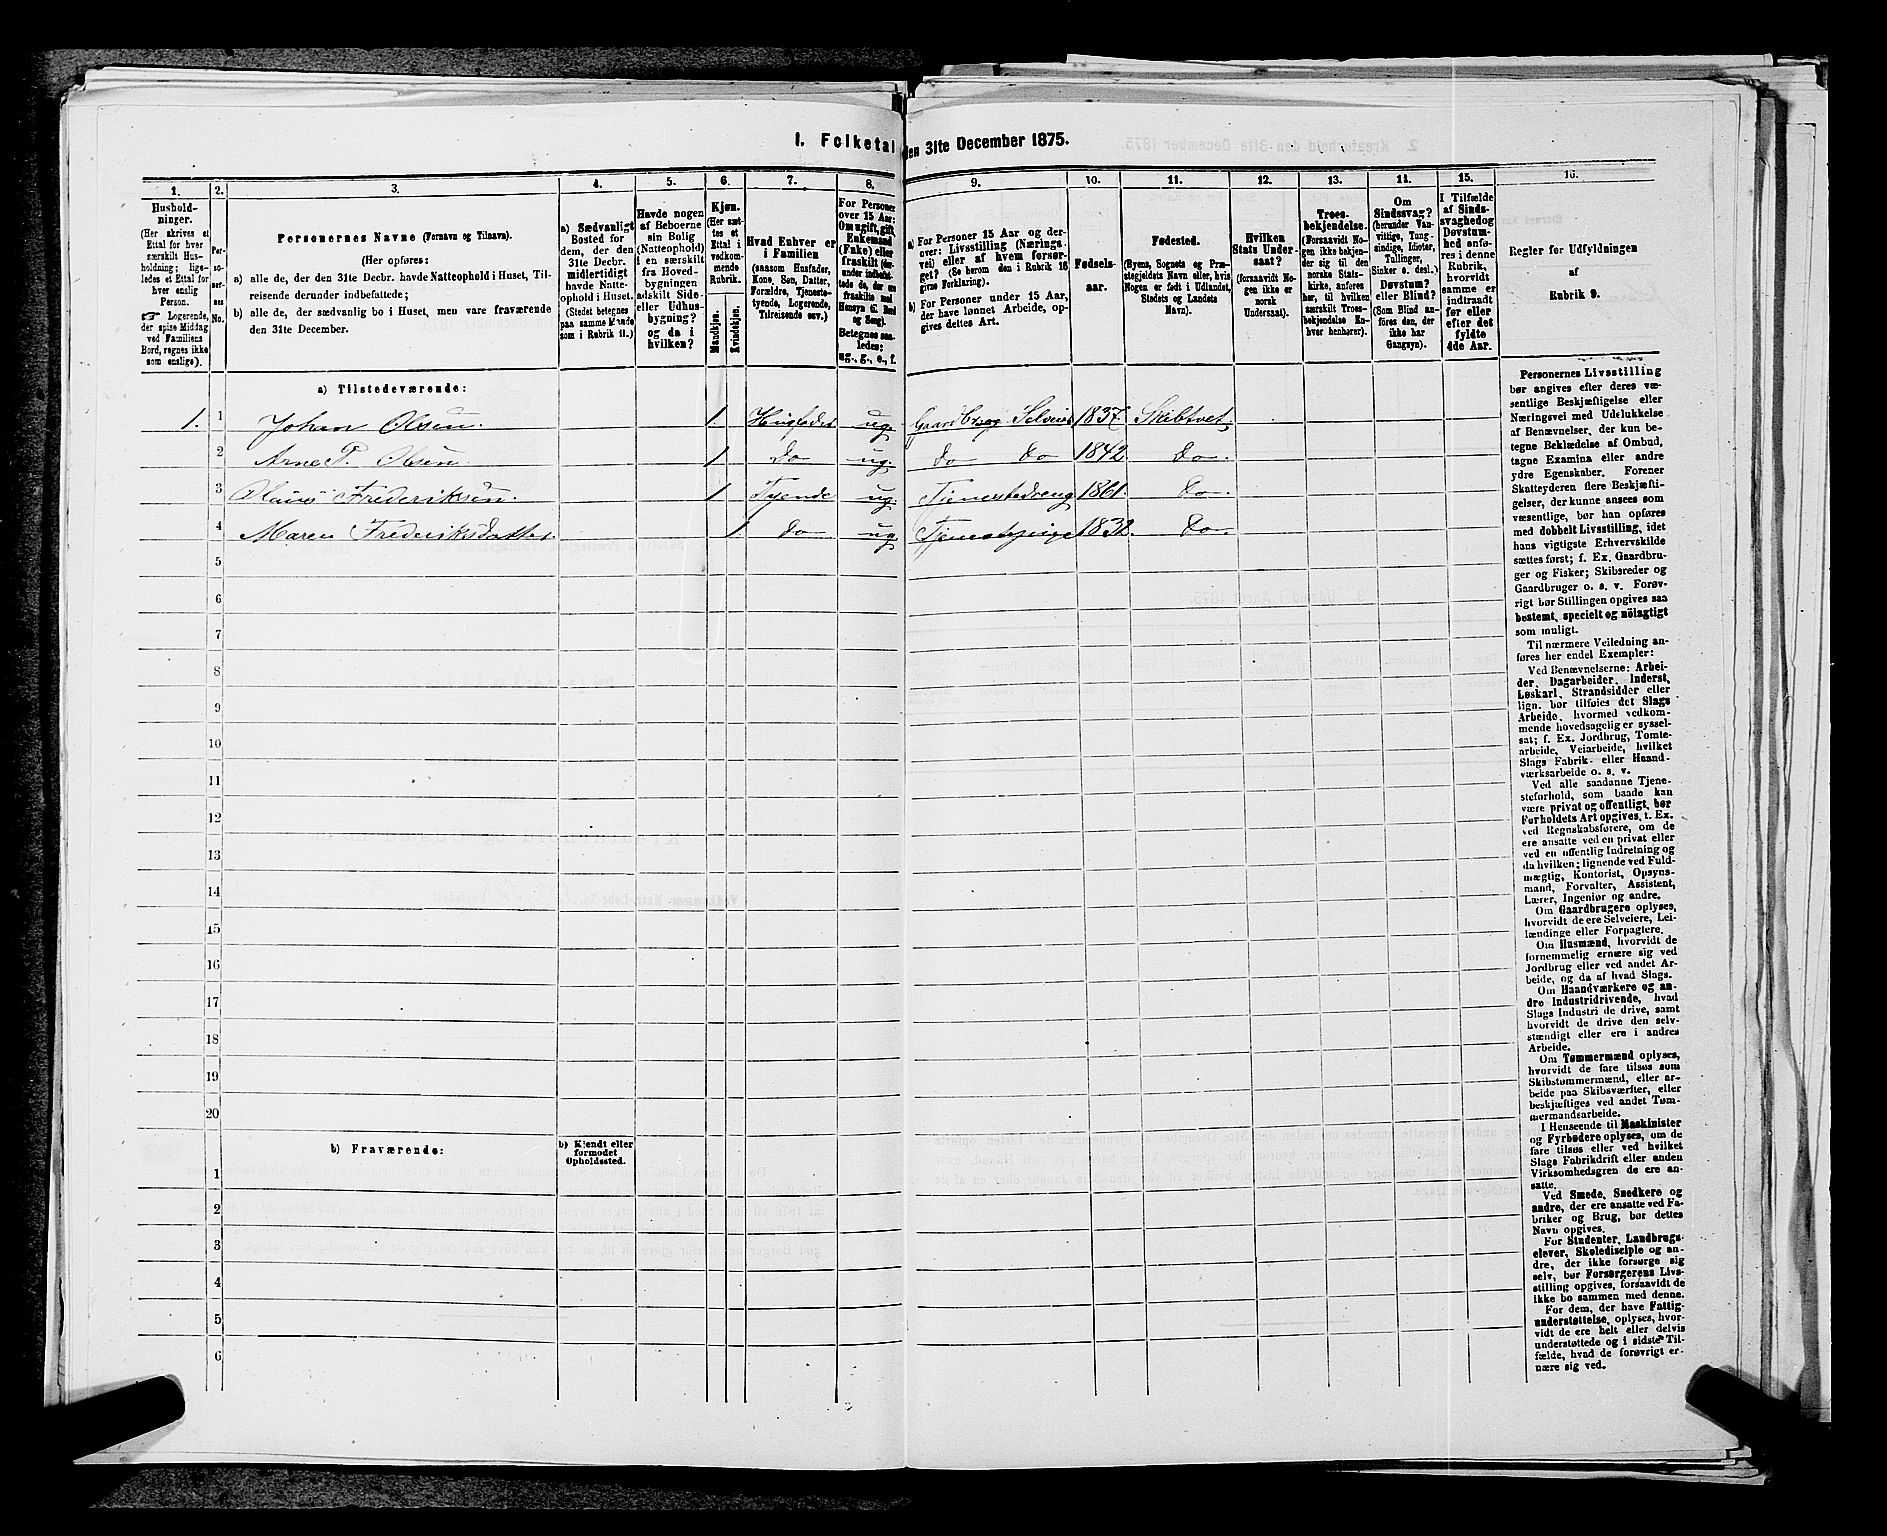 1. Folketal den 31te December 1875.
1. 2. 3. 4. 5. 6. 7. 8. 9. 10. 11. 12. 13. 14. 15. 16.
Hushold-
ninger.
(Her skrives et
Ettal for hver
særskilt Hus-
holdning; lige-
ledes et Ettal for
hver enslig
Person.
☞ Logerende,
der spise Middag
ved Familiens
Bord, regnes ikke
som enslige).
Per-
so-
ner-
nes
No.
Personernes Navne (Fornavn og Tilnavn).
(Her opføres:
a) alle de, der den 31te Decbr. havde Natteophold i Huset, Til-
reisende derunder indbefattede;
b) alle de, der sædvanlig bo i Huset, men vare fraværende
den 31te December.
a) Sædvanligt
Bosted for
dem, der den
31te Decbr.
midlertidigt
havde Natte-
ophold i Huset.
(Stedet betegnes
paa samme Maade
som i Rubrik 11.)
Havde nogen
af Beboerne
sin Bolig
(Natteophold)
i en særskilt
fra Hoved-
bygningen
adskilt Side-
eller Udhus-
bygning?
og da i
hvilken?
Kjøn.
(Her sæt-
tes et
Ettal i
vedkom-
mende
Rubrik.
Mandkjøn.
Kvindekjøn.
Hvad Enhver er
i Familien
(saasom Husfader,
Kone, Søn, Datter,
Forældre, Tjeneste-
tyende, Logerende,
Tilreisende osv.)
For Personer
over 15 Aar:
Om ugift, gift,
Enkemand
(Enke) eller
fraskilt
Betegnes saa-
ledes:
ug., g., e., f.
a) For Personer 15 Aar og der-
over: Livsstilling (Nærings-
vei) eller af hvem forsør-
get? (Se herom den i Rubrik 16
givne Forklaring).
b) For Personer under 15 Aar,
der have lønnet Arbeide, op-
gives dettes Art.
Fødsels-
aar.
Fødested.
(Byens, Sognets og Præ-
stegjeldets Navn eller, hvis
Nogen er født i Udlandet,
Stedets og Landets
Navn).
Hvilken
Stats Under-
saat?
(forsaavidt No-
gen ikke er
norsk
Undersaat).
Troes-
bekjendelse.
(Forsaavidt No-
gen ikke bekjen-
der sig til den
norske Stats-
kirke, anføres
her, til hvilken
særskilt Troes-
bekjendelse En-
hver henhører).
Om
Sindssvag?
(herunder Van-
vittige, Tung-
sindige, Idioter,
Tullinger,
Sinker o. desl.)
Døvstum?
eller Blind?
(Som Blind an-
føres den, der
ikke har
Gangsyn).
I Tilfælde
af Sinds-
svaghed og
Døvstum-
hed anfø-
res i denne
Rubrik,
hvorvidt
samme er
indtraadt
før eller
efter det
fyldte
4de Aar.
Regler for Udfyldningen
af
Rubrik 9.
a) Tilstedeværende:
1. 1 Johan Olsen. 1. Husfader ug. Gaardbrug Selveier 1837. Skibtvet.
2 Arne P. Olsen. 1 Do ug. Do Do 1842. Do.
3 Olaus Frederiksen. 1 Tyende ug. Tjenestedreng 1861. Do.
4 Maren Frederiksdatter. 1 Do ug. Tjenestepige 1832. Do.
5
6
7
8
9
10
11
12
13
14
15
16
17
18
19
20
b) Fraværende:
b) Kjendt eller
formodet
Opholdssted.
1
2
3
4
5
6
Personernes Livsstilling
bør angives efter deres væ-
sentlige Beskjæftigelse eller
Næringsvei med Udelukkelse
af Benævnelser, der kun be-
tegne Beklædelse af Ombud,
tagne Examina eller andre
ydre Egenskaber. Forener
Skatteyderen flere Beskjæfti-
gelser, der kunne ansees som
væsentlige, bør han opføres
med dobbelt Livsstilling, idet
hans vigtigste Erhvervskilde
sættes først; f. Ex. Gaardbru-
ger og Fisker; Skibsreder og
Gaardbruger o. s. v. Forøv-
rigt bør Stillingen opgives saa
bestemt, specielt og nöiagtigt
som muligt.
Til nærmere Veiledning an-
føres her endel Exempler:
Ved Benævnelserne: Arbei-
der, Dagarbeider, Inderst,
Løskarl, Strandsidder eller
lign. bør tilføies det Slags
Arbeide, hvormed vedkom-
mende hovedsagelig er syssel-
sat; f. Ex. Jordbrug, Tomte-
arbeide, Veiarbeide, hvilket
Slags Fabrik- eller Haand-
værksarbeide o. s. v.
Ved alle saadanne Tjene-
steforhold, som baade kan
være privat og offentligt, bør
Forholdets Art opgives, t. Ex.
ved Regnskabsførere, om de
ere ansatte ved en privat eller
ved en offentlig Indretning og
da hvilken; lignende ved Fuld-
mægtig, Kontorist, Opsyns-
mand, Forvalter, Assistent,
Lærer, Ingeniør og andre.
Om Gaardbrugere oplyses,
hvorvidt de ere Selveiere, Lei-
lændinge eller Forpagtere.
Om Husmænd, hvorvidt de
fornemmelig ernære sig ved
Jordbrug eller ved andet Ar-
beide, og da af hvad Slags.
Om Haandværkere og an-
dre Industridrivende, hvad
Slags Industri de drive, samt
hvorvidt de drive den selv-
stændigt eller ere i andres
Arbeide.
Om Tømmermænd oplyses,
hvorvidt de fare tilsøs som
Skibstømmermænd, eller ar-
beide paa Skibsværfter, eller
beskjæftiges ved andet Tøm-
mermandsarbeide.
I Henseende til Maskinister
og Fyrbødere oplyses, om de
fare tilsøs eller ved hvilket
Slags Fabrikdrift eller anden
Virksomhedsgren de ere an-
satte.
Ved Smede, Snedkere og
andre, der ere ansatte ved Fa-
briker og Brug, bør dettes
Navn opgives.
For Studenter, Landbrugs-
elever, Skoledisciple og an-
dre, der ikke forsørge sig
selv, bør Forsørgerens Livs-
stilling opgives, forsaavidt de
ikke bo sammen med denne.
For dem, der have Fattig-
understøttelse, oplyses, hvor-
vidt de ere helt eller delvis
understøttede og i sidste Til-
fælde, hvad de forøvrigt er-
nære sig ved.